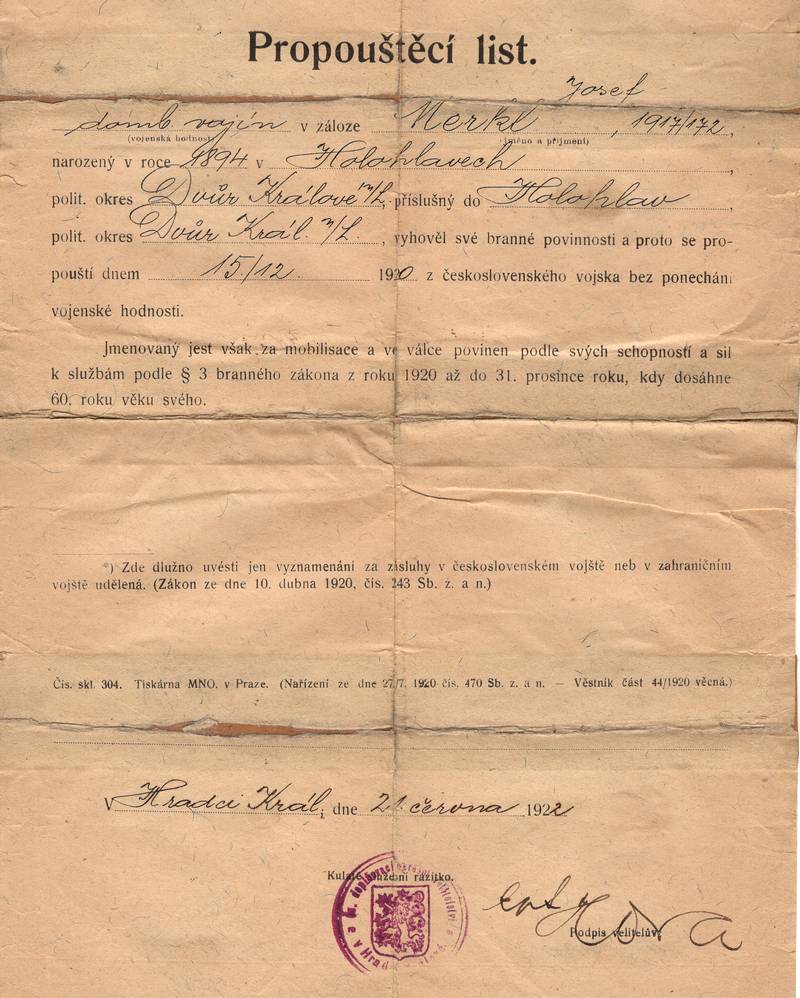 Propouštěcí list.
Josef
domb. vojín v záloze Merkl, 1917/172,
(vojenská hodnost) (jméno a příjmení)
narozený v roce 1894 v Holohlavech,
polit. okres Dvůr Králové n/L, příslušný do Holohlav,
polit. okres Dvůr Král. n/L., vyhověl své branné povinnosti a proto se pro-
pouští dnem 15/12. 1920 z československého vojska bez ponechání
vojenské hodnosti.
Jmenovaný jest však za mobilisace a ve válce povinen podle svých schopností a sil
k službám podle § 3 branného zákona z roku 1920 až do 31. prosince roku, kdy dosáhne
60. roku věku svého.
*) Zde dlužno uvésti jen vyznamenání za zásluhy v československém vojště neb v zahraničním
vojště udělená. (Zákon ze dne 10. dubna 1920, čís. 243 Sb. z. a n.)
Čís. skl. 304. Tiskárna MNO. v Praze. (Nařízení ze dne 27./7. 1920 čís. 470 Sb. z. a n. — Věstník část 44/1920 věcná.)
V Hradci Král., dne 21. června 1922
Kulaté služební razítko.
doplňovací okresní velitelství
v Hrad
Podpis velitelův.